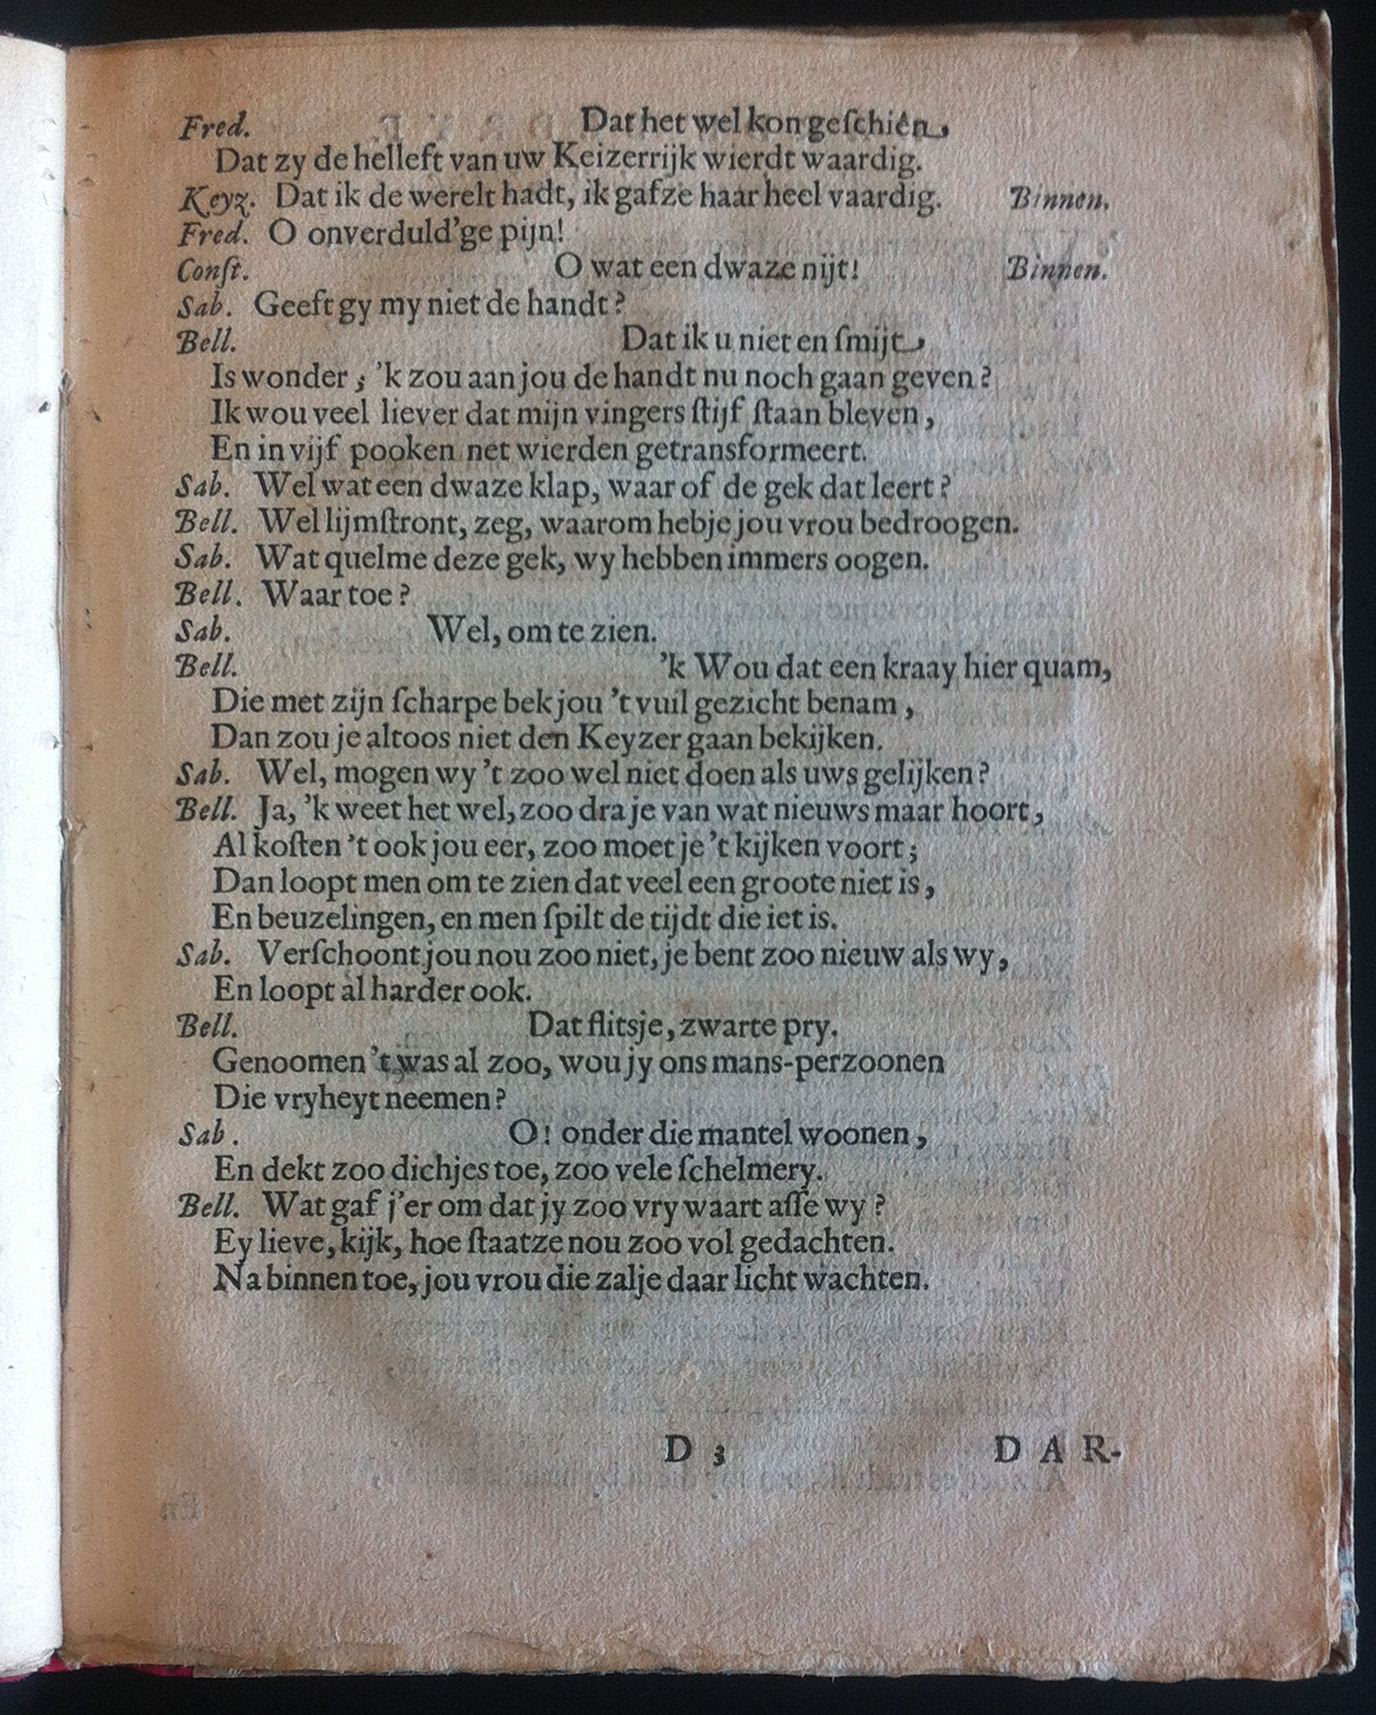 Fred. Dat het wel kon geſchién,
Dat zy de helleft van uw Keizerrijk wierdt waardig.
Keyz. Dat ik de werelt hadt, ik gafze haar heel vaardig. Binnen.
Fred. O onverduld'ge pijn!
Conſt. O wat een dwaze nijt! Binnen.
Sab. Geeft gy my niet de handt?
Bell. Dat ik u niet en ſmijt,
Is wonder; 'k zou aan jou de handt nu noch gaan geven?
Ik wou veel liever dat mijn vingers ſtijf ſtaan bleven,
En in vijf pooken net wierden getransformeert.
Sab. Wel wat een dwaze klap, waar of de gek dat leert?
Bell. Wel lijmſtront, zeg, waarom hebje jou vrou bedroogen.
Sab. Wat quelme deze gek, wy hebben immers oogen.
Bell. Waar toe?
Sab. Wel, om te zien.
Bell. 'k Wou dat een kraay hier quam,
Die met zijn ſcharpe bek jou 't vuil gezicht benam,
Dan zou je altoos niet den Keyzer gaan bekijken.
Sab. Wel, mogen wy 't zoo wel niet doen als uws gelijken?
Bell. Ja, 'k weet het wel, zoo dra je van wat nieuws maar hoort,
Al koſten 't ook jou eer, zoo moet je 't kijken voort;
Dan loopt men om te zien dat veel een groote niet is,
En beuzelingen, en men ſpilt de tijdt die iet is.
Sab. Verſchoont jou nou zoo niet, je bent zoo nieuw als wy,
En loopt al harder ook.
Bell. Dat flitsje, zwarte pry.
Genoomen 't was al zoo, wou jy ons mans-perzoonen
Die vryheyt neemen?
Sab. O! onder die mantel woonen,
En dekt zoo dichjes toe, zoo vele ſchelmery.
Bell. Wat gaf j'er om dat jy zoo vry waart aſſe wy?
Ey lieve, kijk, hoe ſtaatze nou zoo vol gedachten.
Na binnen toe, jou vrou die zalje daar licht wachten.
D 3 DAR-